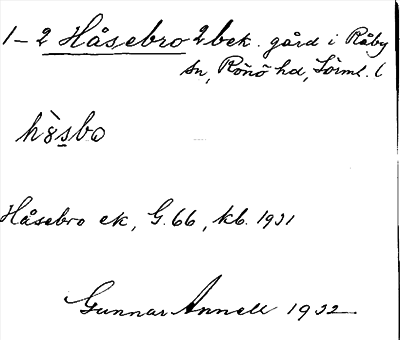 1–2 Håsebro 2 bek. gård i Råby
sn, Rönö hd, Sörml. l
hòsbo
Håsebro ek, G. 66, kb. 1931
Gunnar Annell 1932